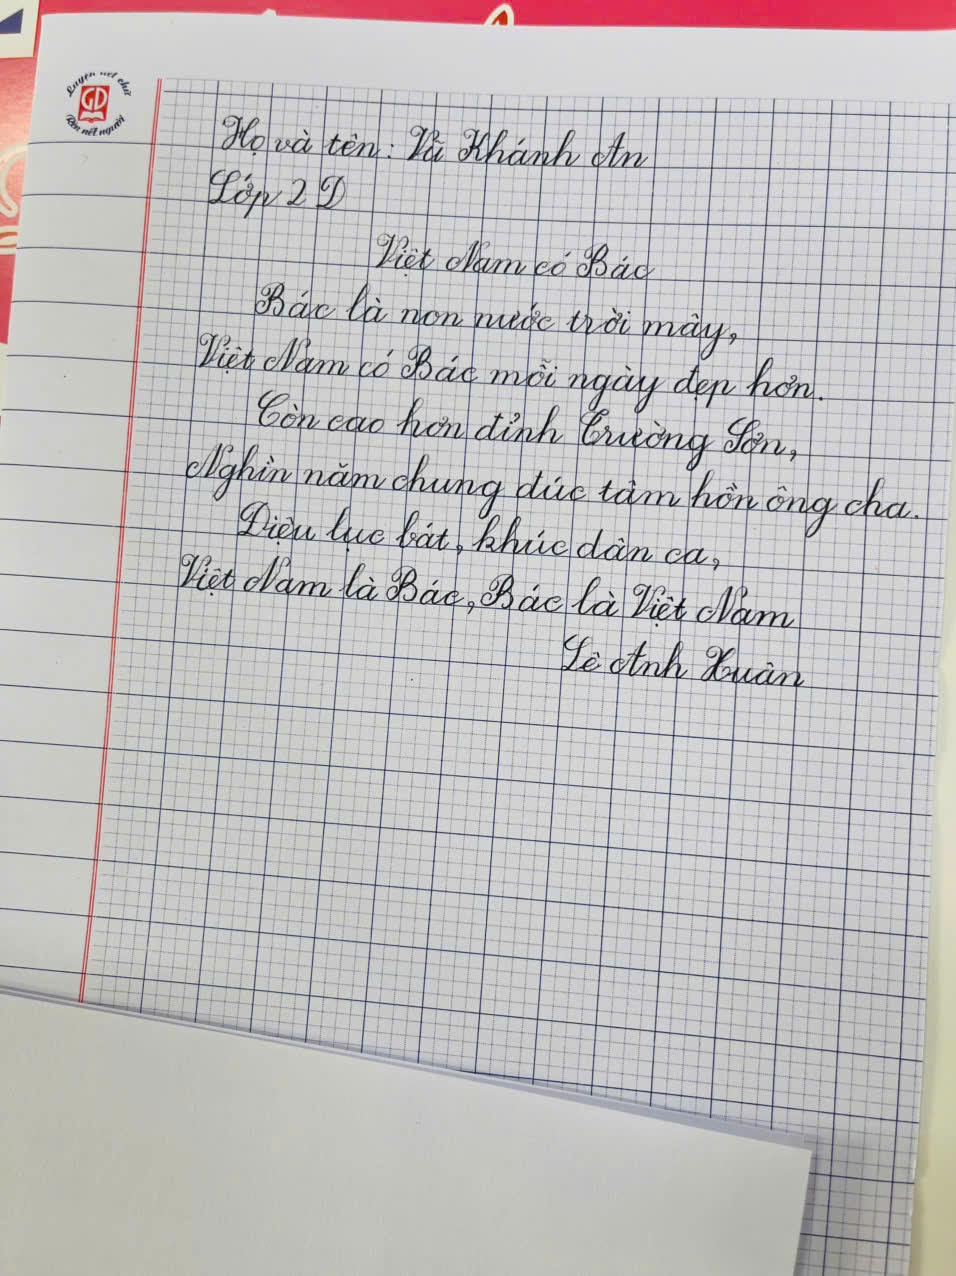 Luyện nét chữ
GD
Rèn nết người
Họ và tên: Vũ Khánh An
Lớp 2D
Việt Nam có Bác
Bác là non nước trời mây,
Việt Nam có Bác mỗi ngày đẹp hơn.
Còn cao hơn đỉnh Trường Sơn,
Nghìn năm chung đúc tâm hồn ông cha.
Điệu lục bát, khúc dân ca,
Việt Nam là Bác, Bác là Việt Nam
Lê Anh Xuân